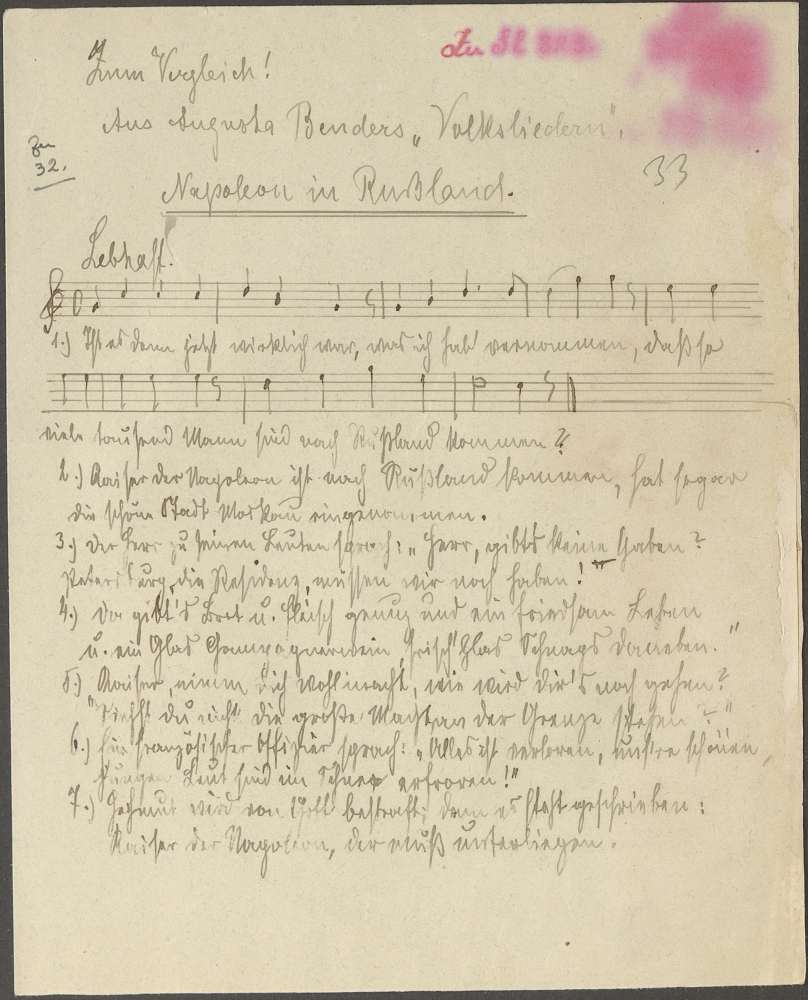 Zum Vergleich!
Zu
Aus Augusta Benders „Volksliedern".
Zu
32.
33
Napoleon in Rußland.
Lebhaft.
1.) Ist es denn jetzt wirklich war, was ich hab vernommen, daß so
viele tausend Mann sind nach Rußland kommen?
2.) Kaiser der Napoleon ist nach Rußland kommen, hat sogar
die schöne Stadt Moskau eingenommen.
3.) Der Herr zu seinen Leuten sprach: „Herr, gibt's keine Gaben?
Petersburg, die Residenz, müssen wir noch haben!"
4.) Da gibt's Brot u. Fleisch genug und ein friedsam Leben
u. ein Glas Campagnerwein, frisch Glas Schnaps daneben."
5.) Kaiser, nimm dich wohl inacht, wie wird dir's noch gehen?
Siehst du nicht die große Macht an der Grenze stehen?"
6.) Ein französischer Offizier sprach: „Alles ist verloren, unsre schönen,
jungen Leut sind im Schnee erfroren!"
7.) Hochmut wird von Gott bestraft; denn es steht geschrieben:
Kaiser der Napoleon, der muß unterliegen.